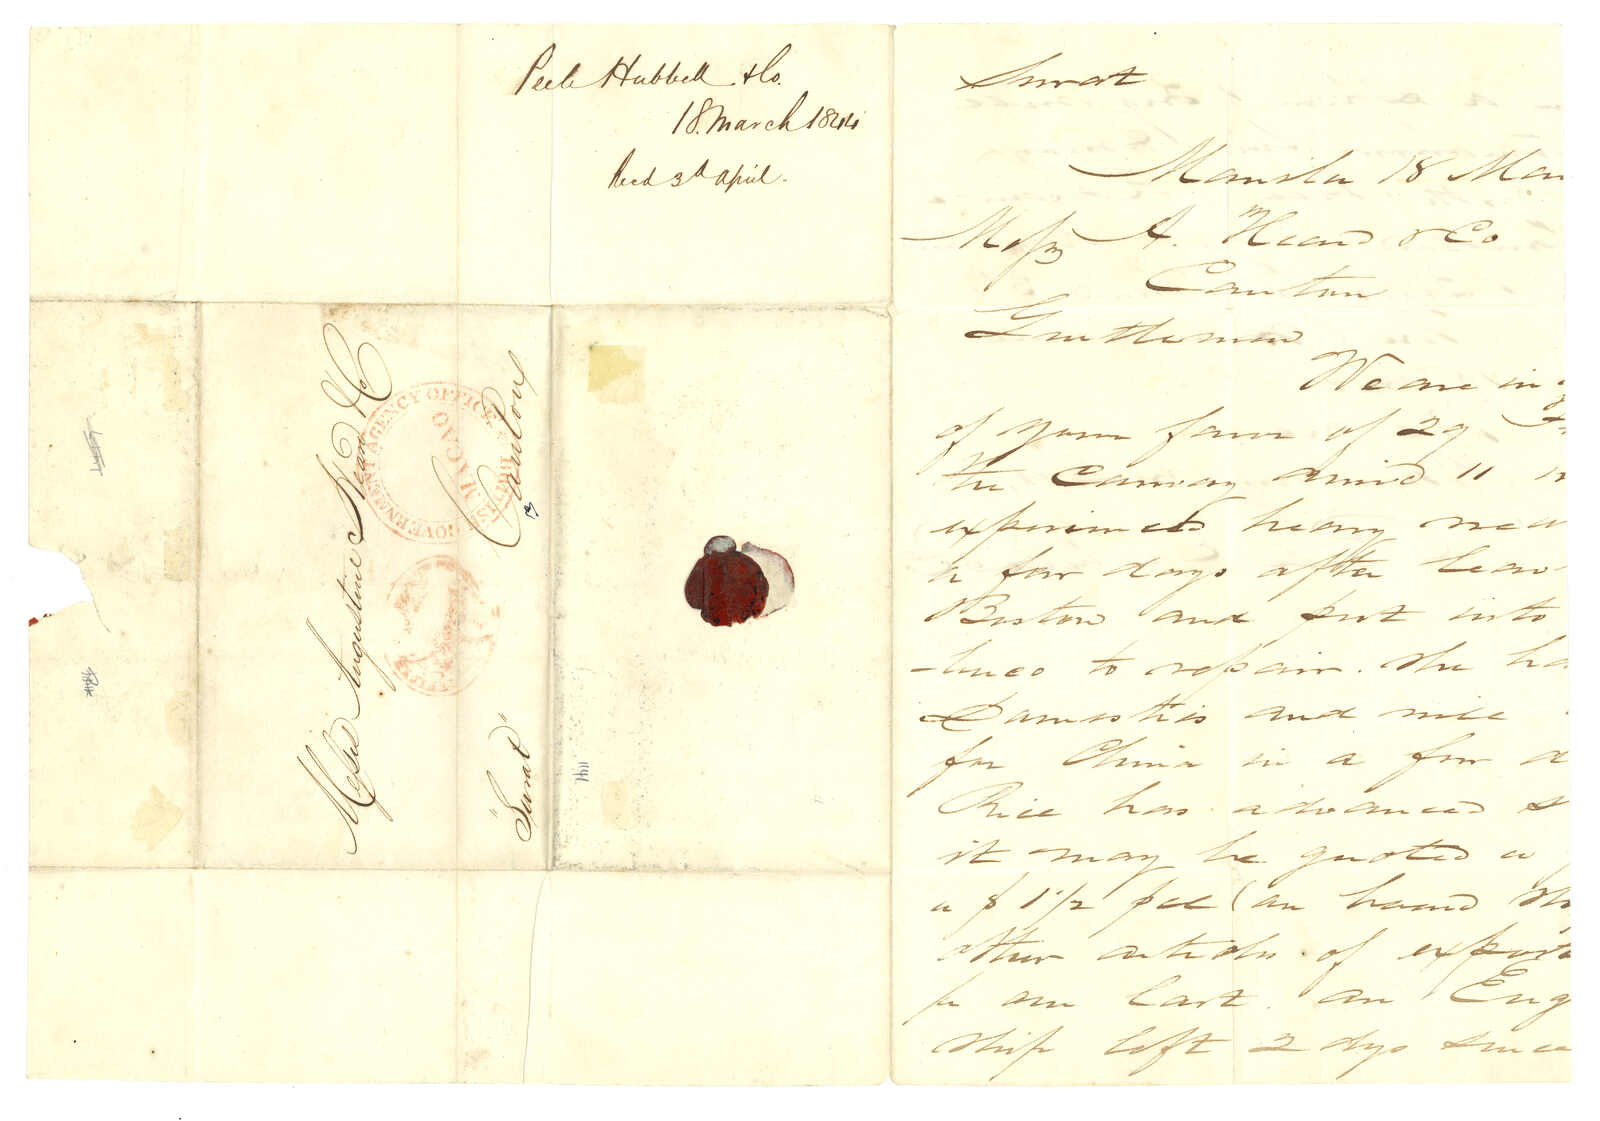 Peele Hubbell & Co.
18. March 1844
Recd 3d April.
Messrs Augustine Heard & Co
Canton
"Surat"
BRITISH GOVERNMENT AGENCY OFFICE
MACAO
Surat
Manila 18 Mar
Messrs A. Heard & Co
Canton
Gentlemen
We are in
of your favor of 29
the arrived 11
experienced heavy
a few days after leav
Boston and put into
to repair. She ha
Domestics and will
for China in a few d
Rice has advanced &
it may be quoted a
a $ 1 1/2 pcl (on board
other articles of export
p our last. An Eng
ship left 2 dys since